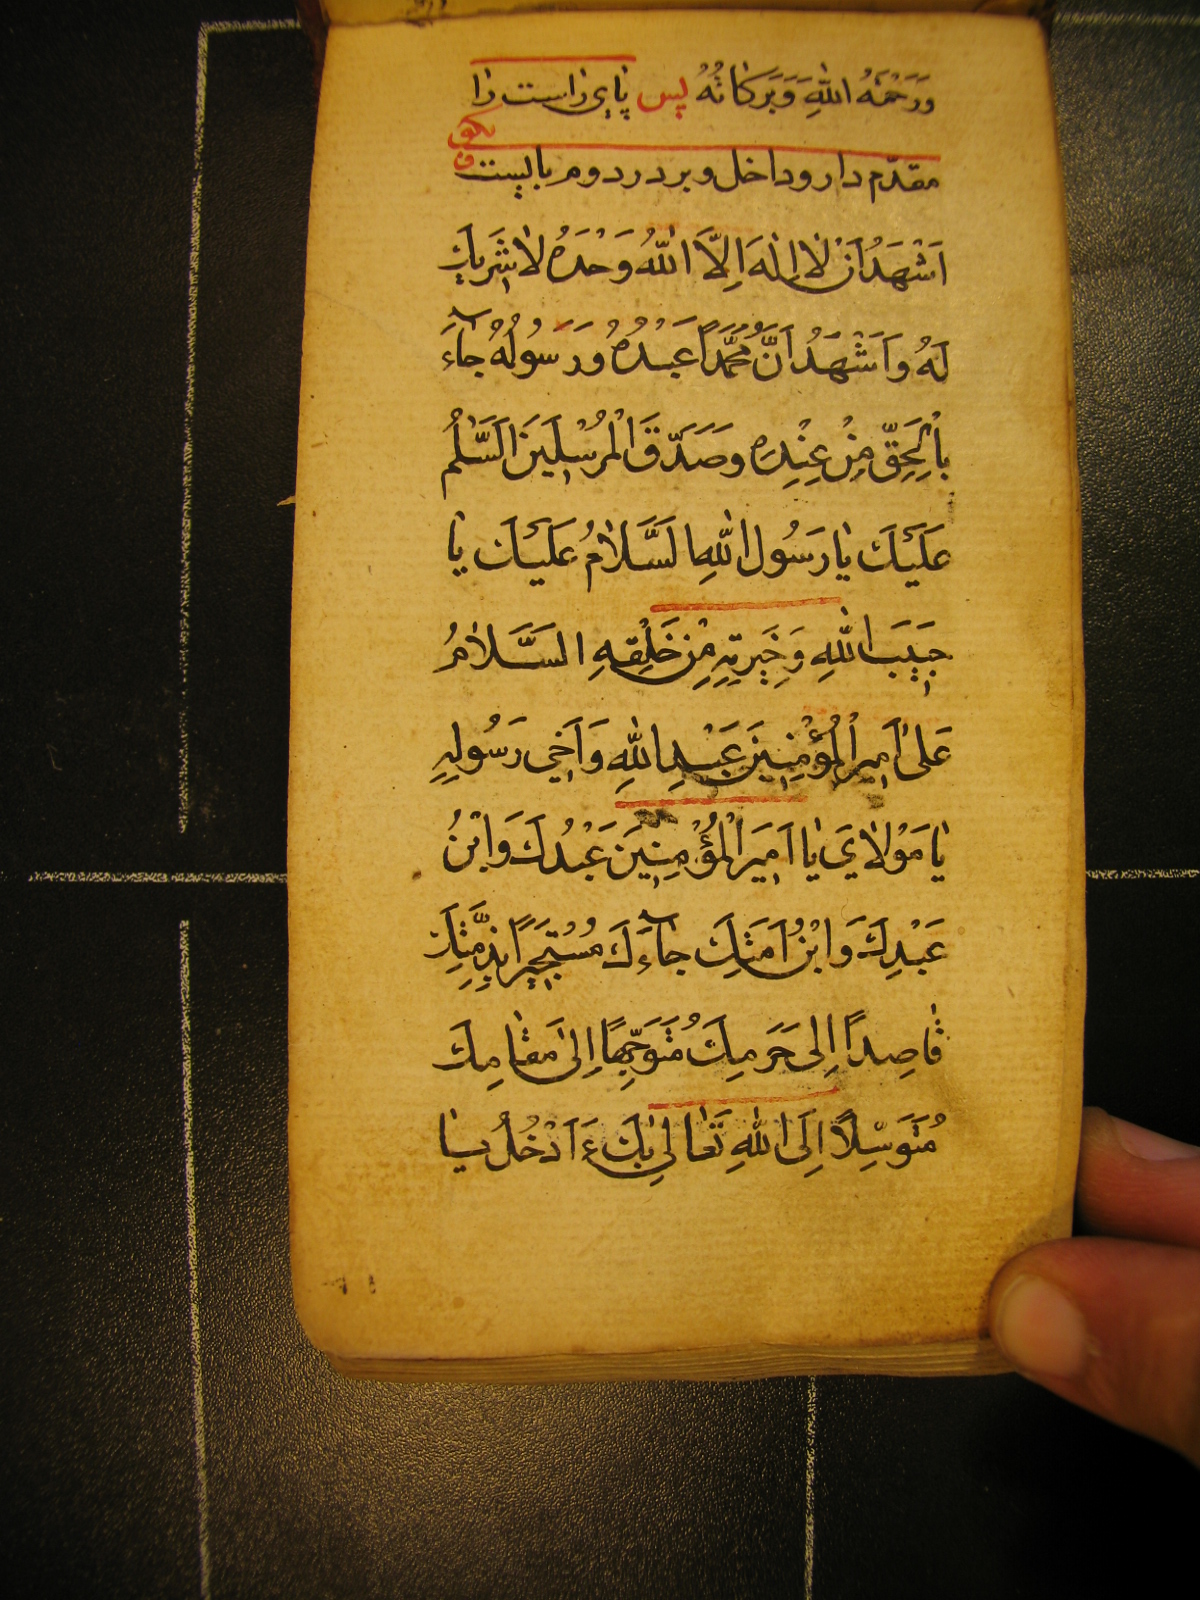 وَرَحْمَةُ اللّٰهِ وَبَرَكَاتُهُ پس پای راست را
مقدّم دار و داخل و بر در دوم بایست بگو
اَشْهَدُ اَنْ لاٰ اِلٰهَ اِلَّا اللّٰهُ وَحْدَهُ لاٰ شَرِيكَ
لَهُ وَاَشْهَدُ اَنَّ مُحَمَّدًا عَبْدُهُ وَرَسُولُهُ جاۤءَ
بِالْحَقِّ مِنْ عِنْدِهِ وَصَدَّقَ الْمُرْسَلِينَ اَلسَّلٰمُ
عَلَيْكَ يٰا رَسُولَ اللّٰهِ اَلسَّلاٰمُ عَلَيْكَ يٰا
حَبِيبَ اللّٰهِ وَخِيَرَتِهِ مِنْ خَلْقِهِ اَلسَّلاٰمُ
عَلٰى اَمِيرِ الْمُؤْمِنِينَ عَبْدِ اللّٰهِ وَاَخِي رَسُولِهِ
يٰا مَوْلاٰيَ يٰا اَمِيرَ الْمُؤْمِنِينَ عَبْدُكَ وَابْنُ
عَبْدِكَ وَابْنُ اَمَتِكَ جاۤءَكَ مُسْتَجِيرًا بِذِمَّتِكَ
قٰاصِدًا اِلٰى حَرَمِكَ مُتَوَجِّهًا اِلٰى مَقٰامِكَ
مُتَوَسِّلًا اِلَى اللّٰهِ تَعٰالٰى بِكَ ءَاَدْخُلُ يٰا